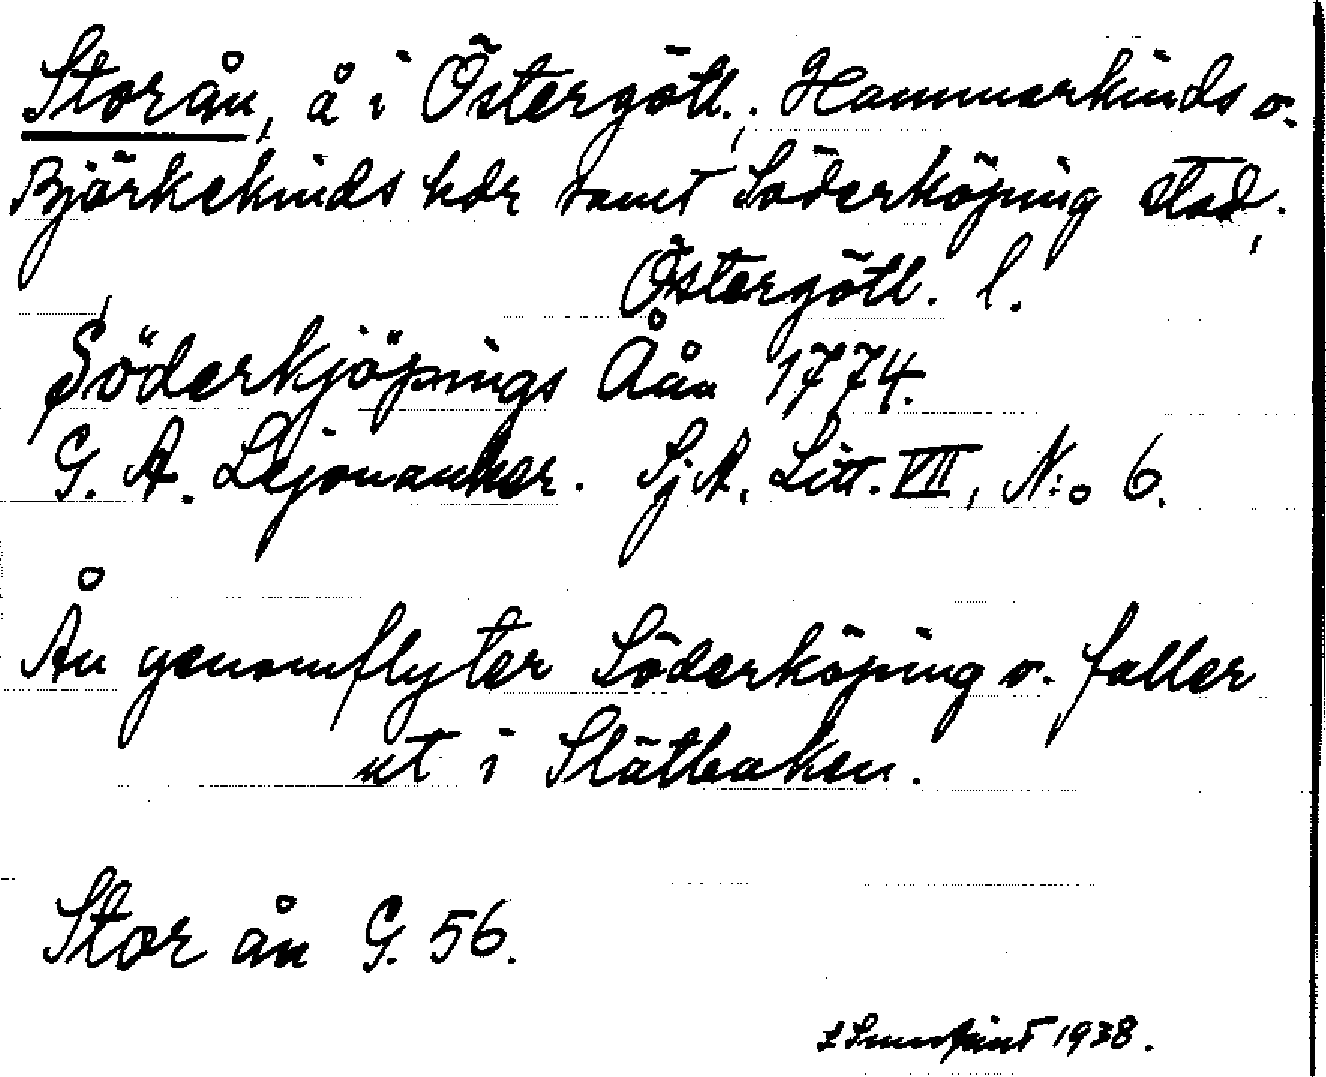 Storån, å i Östergötl.; Hammarkinds o.
Björkekinds hdr samt Söderköping stad;
Östergötl. l.
Söderkjöpings Åån 1774.
G. A. Lejonanker. SjA, Litt. VII, N:o 6.
Ån genomflyter Söderköping o. faller
ut i Slätbaken.
Stor ån G. 56.
1938.